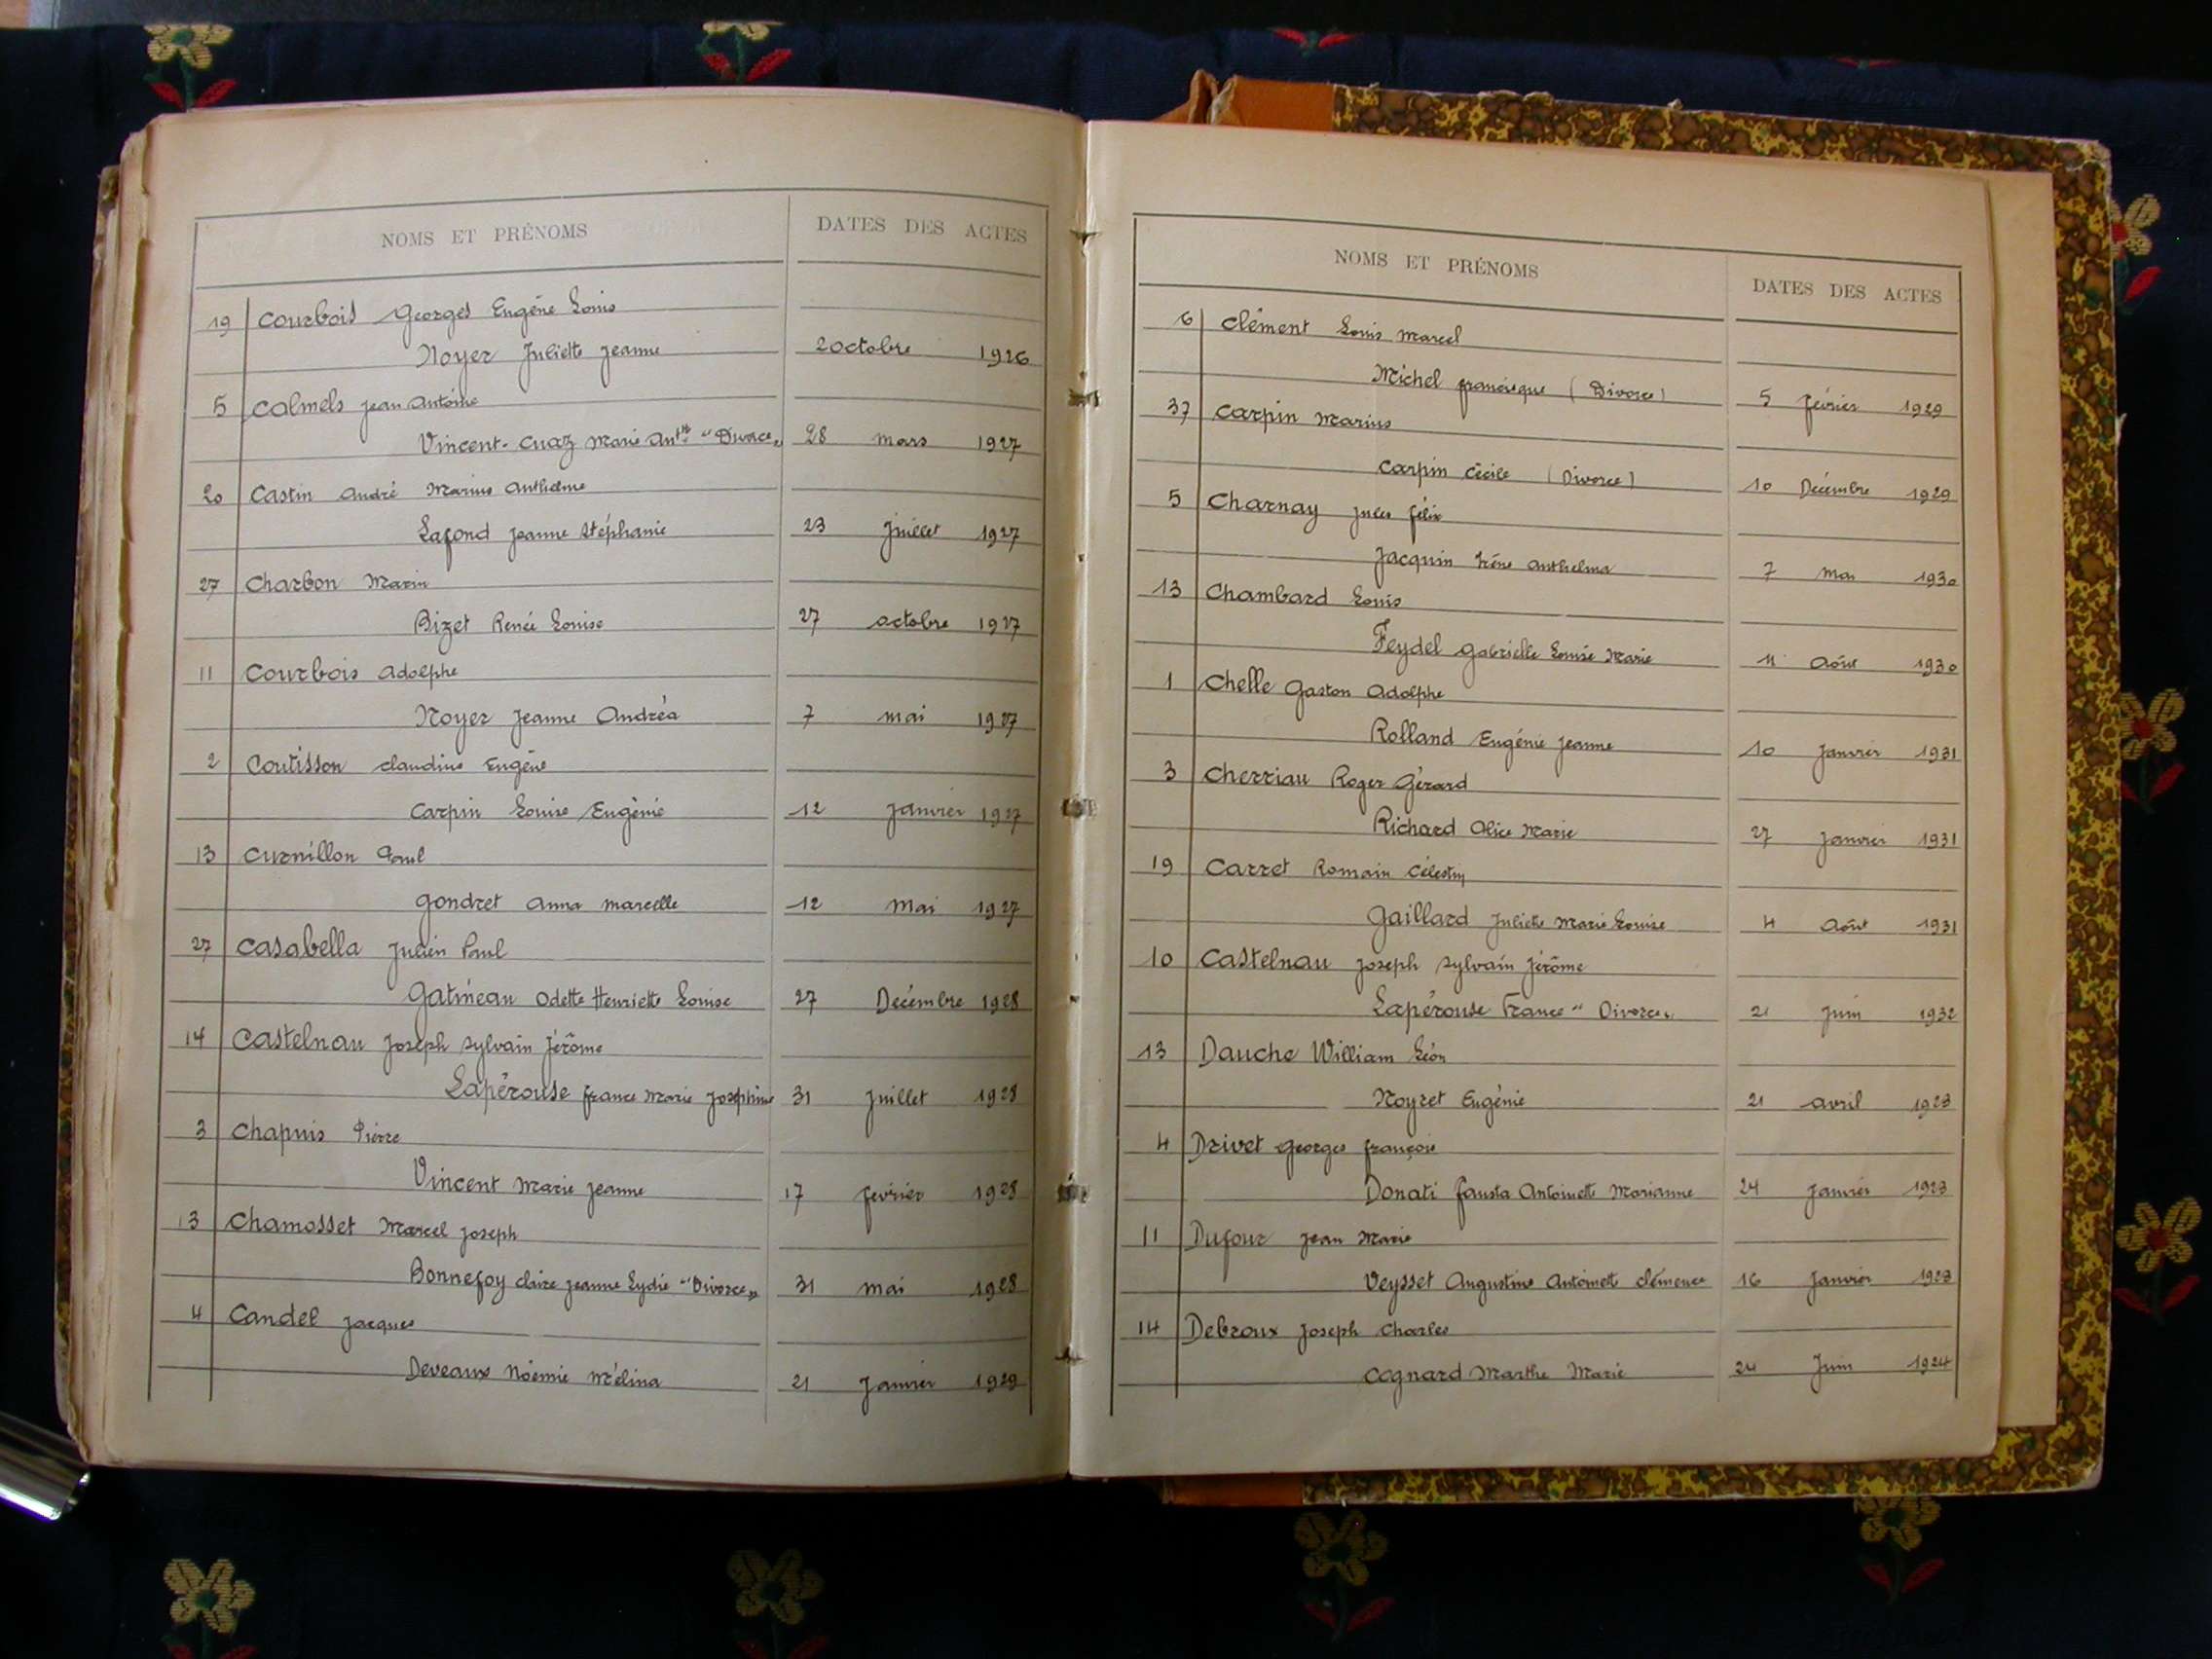 NOMS ET PRÉNOMS DATES DES ACTES
19 Courbois Georges Eugène Louis
Noyer Juliette Jeanne 2 octobre 1926
5 Calmels Jean Antoine
Vincent-Cuaz Marie Antte "Divorce" 28 mars 1927
20 Castin André Marius Anthelme
Lafond Jeanne Stéphanie 23 juillet 1927
27 Charbon Marin
Bizet Renée Louise 27 octobre 1927
11 Courbois Adolphe
Noyer Jeanne Andréa 7 mai 1927
2 Coutisson Claudius Eugène
Carpin Louise Eugènie 12 janvier 1927
13 Curnillon Paul
Gondret Anna Marcelle 12 Mai 1927
27 Casabella Julien Paul
Gatineau Odette Henriette Louise 27 Décembre 1928
14 Castelnau Joseph Sylvain Jérôme
Lapérouse France Marie Joséphine 31 juillet 1928
3 Chapuis Pierre
Vincent Marie Jeanne 17 février 1928
13 Chamosset Marcel Joseph
Bonnefoy Claire Jeanne Lydie "Divorce" 31 mai 1928
4 Candel Jacques
Deveaux Noémie Mélina 21 Janvier 1929
NOMS ET PRÉNOMS DATES DES ACTES
6 Clément Louis Marcel
Michel Francisque (Divorce) 5 février 1929
37 Carpin Marius
Carpin Cécile (Divorce) 10 Décembre 1929
5 Charnay Jules Félix
Jacquin Irène Anthelma 7 mai 1930
13 Chambard Louis
Feydel Gabrielle Louise Marie 11 Août 1930
1 Chelle Gaston Adolphe
Rolland Eugénie Jeanne 10 janvier 1931
3 Cherriau Roger Gérard
Richard Alice Marie 27 janvier 1931
19 Carret Romain Célestin
Gaillard Juliette Marie Louise 4 Août 1931
10 Castelnau Joseph Sylvain Jérôme
Lapérouse France "Divorce" 21 juin 1932
13 Dauche William Léon
Noyret Eugénie 21 avril 1923
4 Drivet Georges François
Donati Fausta Antoinette Marianne 24 janvier 1923
11 Dufour Jean Marie
Veysset Augustine Antoinette Clémence 16 Janvier 1923
14 Debroux Joseph Charles
Cognard Marthe Marie 24 Juin 1924